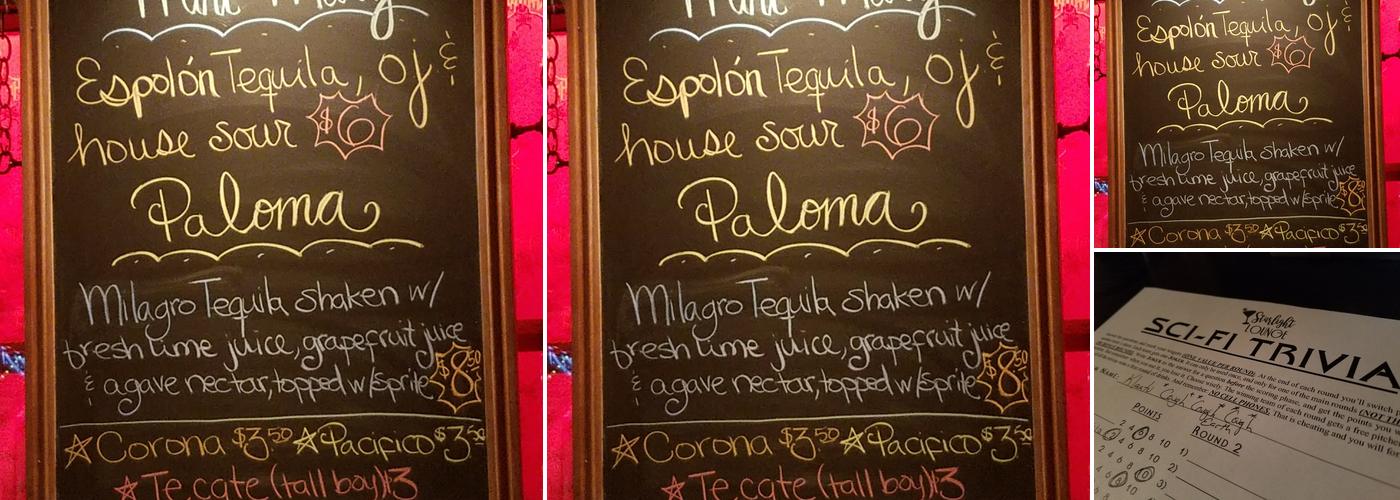 Espolón Tequila, OJ &
house sour $6
Paloma
Milagro Tequila shaken w/
fresh lime juice, grapefruit juice
& agave nectar, topped w/sprite $8.50
☆Corona $3.50 ☆Pacifico $3.50
☆Tecate (tall boy) $3
Espolón Tequila, OJ &
house sour $6
Paloma
Milagro Tequila shaken w/
fresh lime juice, grapefruit juice
& agave nectar, topped w/sprite $8.50
☆Corona $3.50 ☆Pacifico $3.50
☆Tecate (tall boy) $3
Espolón Tequila, OJ &
house sour $6
Paloma
Milagro Tequila shaken w/
fresh lime juice, grapefruit juice
& agave nectar, topped w/sprite $8.50
☆Corona $3.50 ☆Pacifico $3.50
Starlight
LOUNGE
SCI-FI TRIVIA
ONE VALUE PER ROUND. At the end of each round you'll switch
NO CELL PHONES. That is cheating and you will for
NAME: Cough Cough Cough
Earth
POINTS
ROUND 2
2 4 6 8 10
1)
2 4 6 8 10
2)
2 4 6 8 10
3)